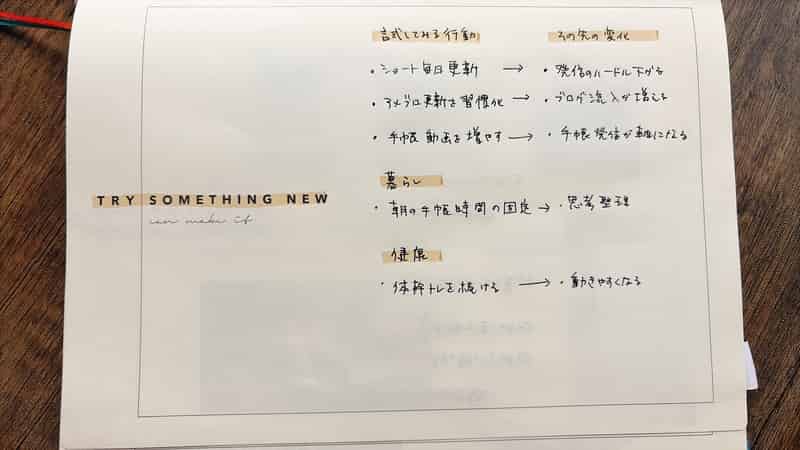 試してみる行動 その先の変化
・ショート毎日更新 → ・発信のハードル下がる
・アメブロ更新を習慣化 → ・ブログ流入が増える
・手帳動画を増やす → ・手帳発信が軸になる
暮らし
TRY SOMETHING NEW
can make it
・朝の手帳時間の固定 → ・思考整理
健康
・体幹トレを続ける → ・動きやすくなる